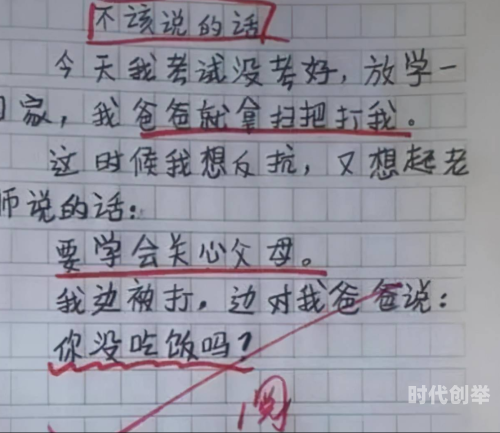 不该说的话
今天我考试没考好，放学一
回家，我爸爸就拿扫把打我。
这时候我想反抗，又想起老
师说的话：
要学会关心父母。
我边被打，边对我爸爸说：
你没吃饭吗？
阅
时代创举